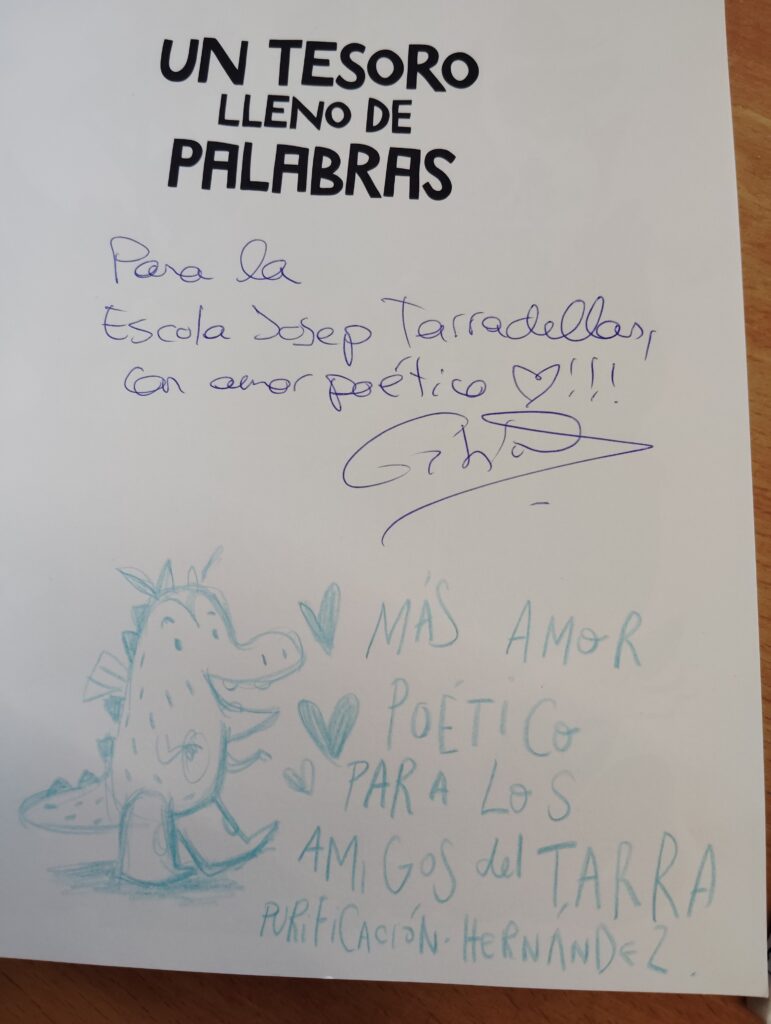 UN TESORO
LLENO DE
PALABRAS
Para la
Escola Josep Tarradellas,
con amor poético ♡!!!
MÁS AMOR
POÉTICO
PARA LOS
AMIGOS del TARRA
PURIFICACIÓN·HERNÁNDEZ.